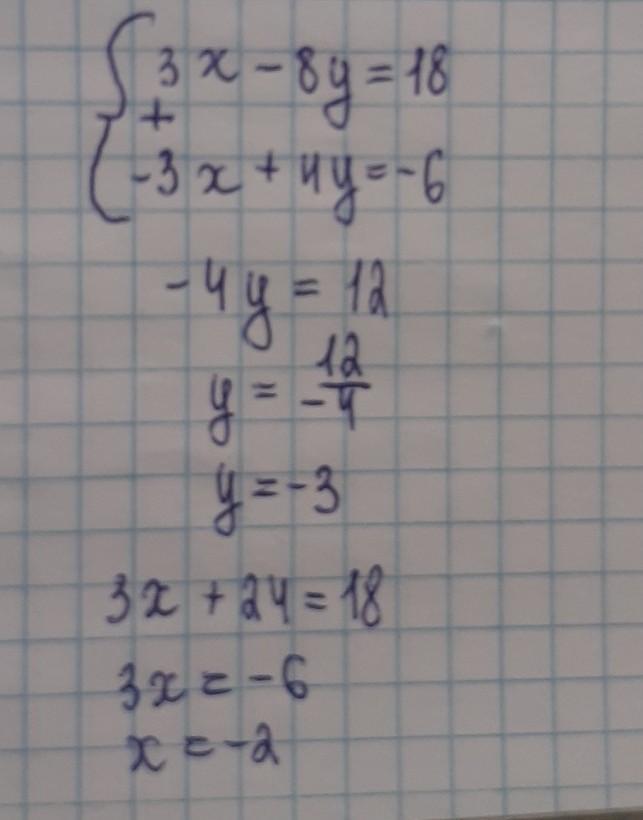 3x - 8y = 18
+
-3x + 4y = -6
-4y = 12
y = 12/-4
y = -3
3x + 24 = 18
3x = -6
x = -2